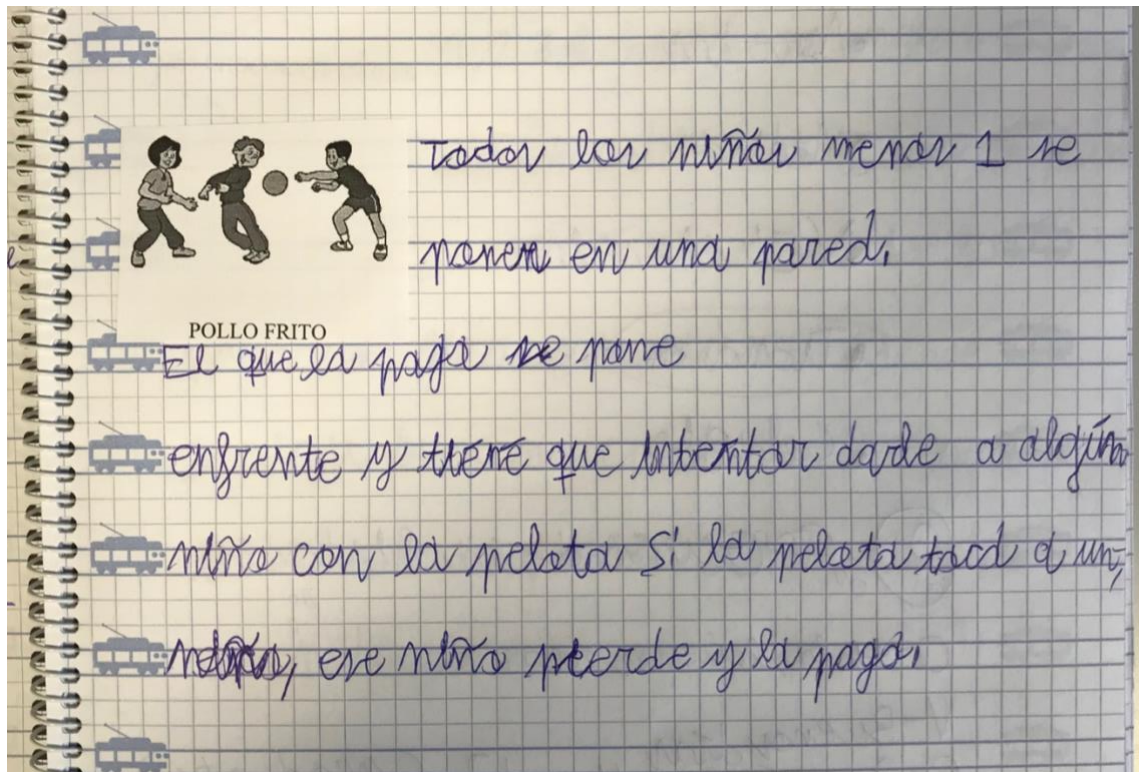 Todos los niños menos 1 se
ponen en una pared.
POLLO FRITO
El que la paga se pone
enfrente y tiene que intentar darle a algún
niño con la pelota Si la pelota toca a un,
niño, ese niño pierde y la paga.